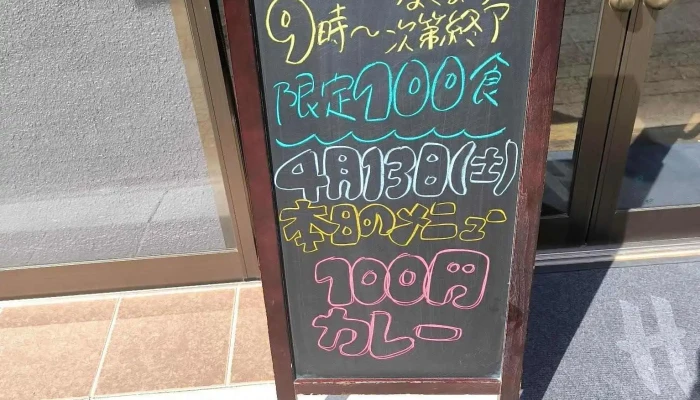 9時～次第終了
限定100食
4月13日(土)
本日のメニュー
100円
カレー